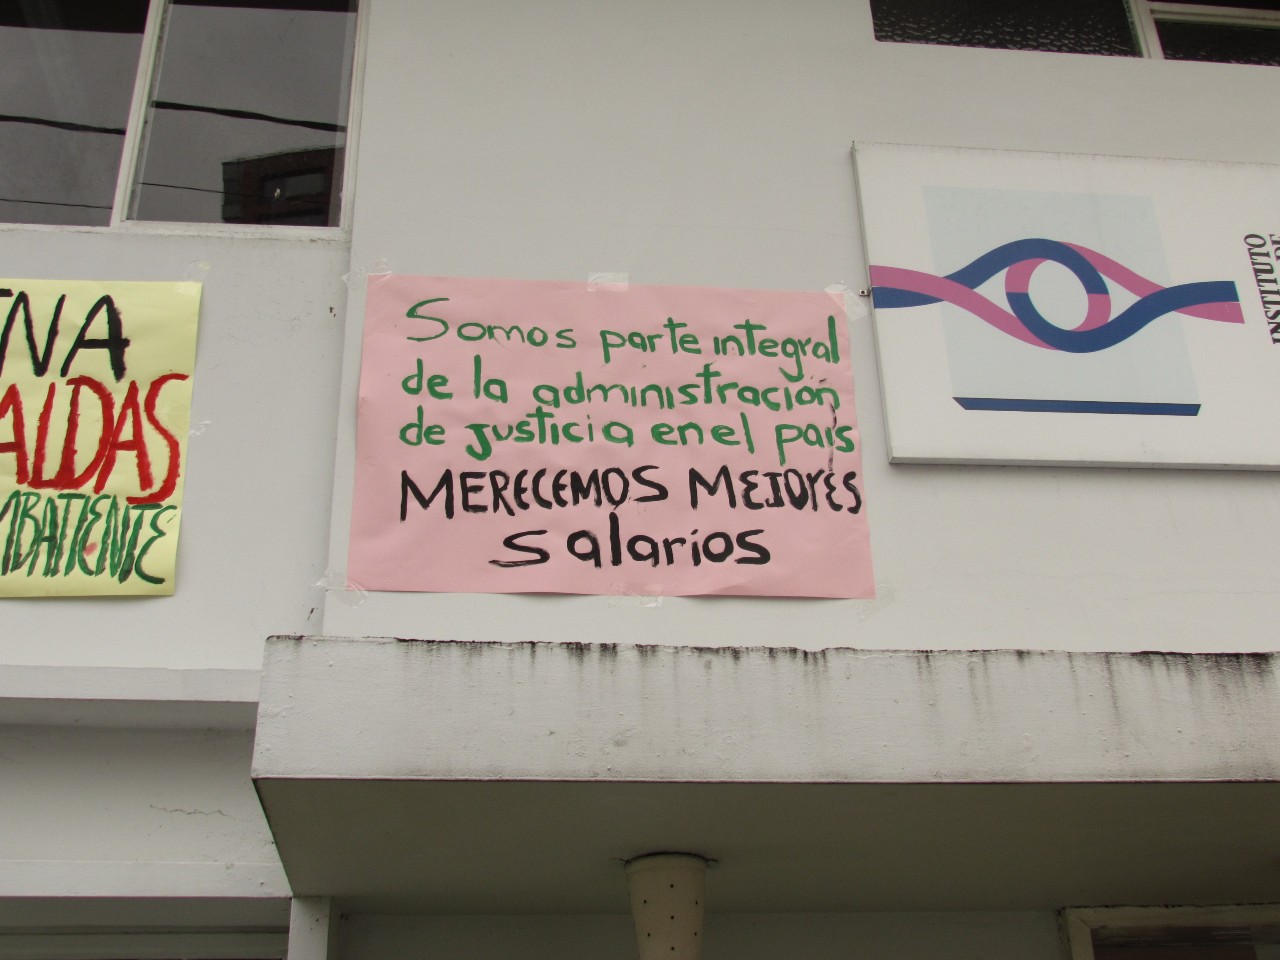 Somos parte integral
de la administración
de justicia en el país
MERECEMOS MEJORES
salarios
NA
ALDAS
MBATIENTE
INSTITUTO
DE